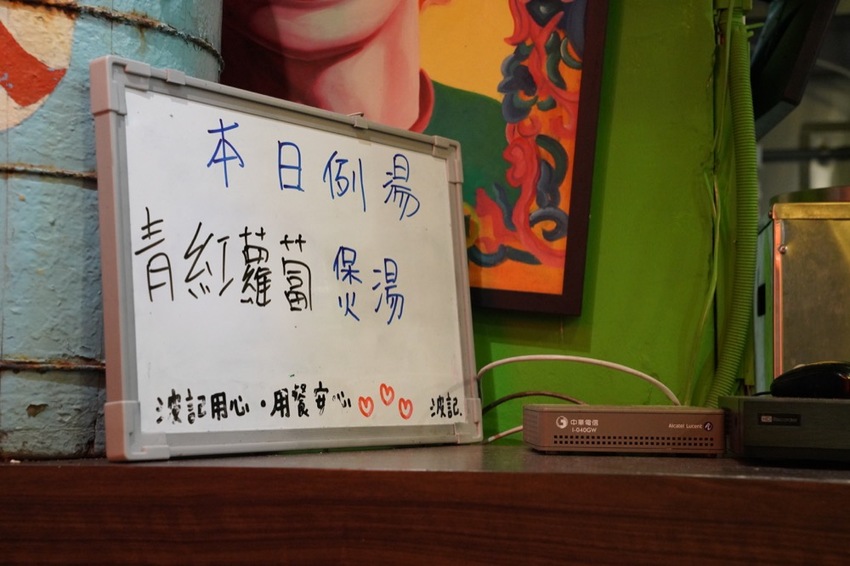 本日例湯
青紅蘿蔔煲湯
波記用心・用餐安心 波記.
中華電信
I-040GW
Alcatel Lucent